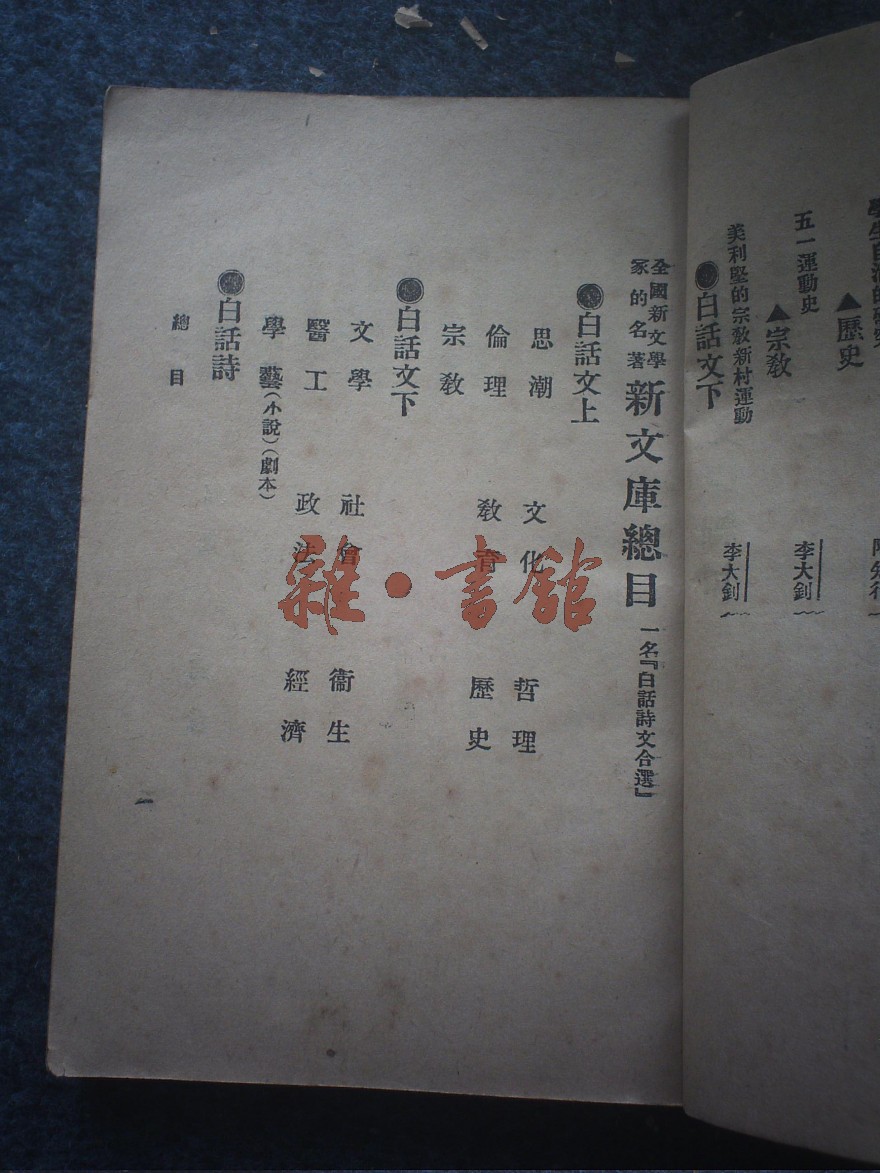 全國新文學
家的名著
新文庫總目
一名『白話詩文合選』
白話文上
思潮 文化 哲理
倫理 教育 歷史
宗教
白話文下
文學 社會 衞生
醫工 政法 經濟
學藝(小說)(劇本)
白話詩
總目
一
▲歷史
五一運動史 李大釗
▲宗教
美利堅的宗教新村運動 李大釗
白話文下
雜·書館